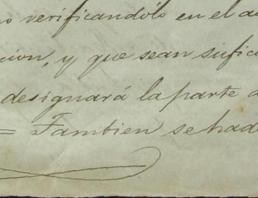 no verificandolo en el a
cion, y que sean sufic
designará la parte
= Tambien se ha d